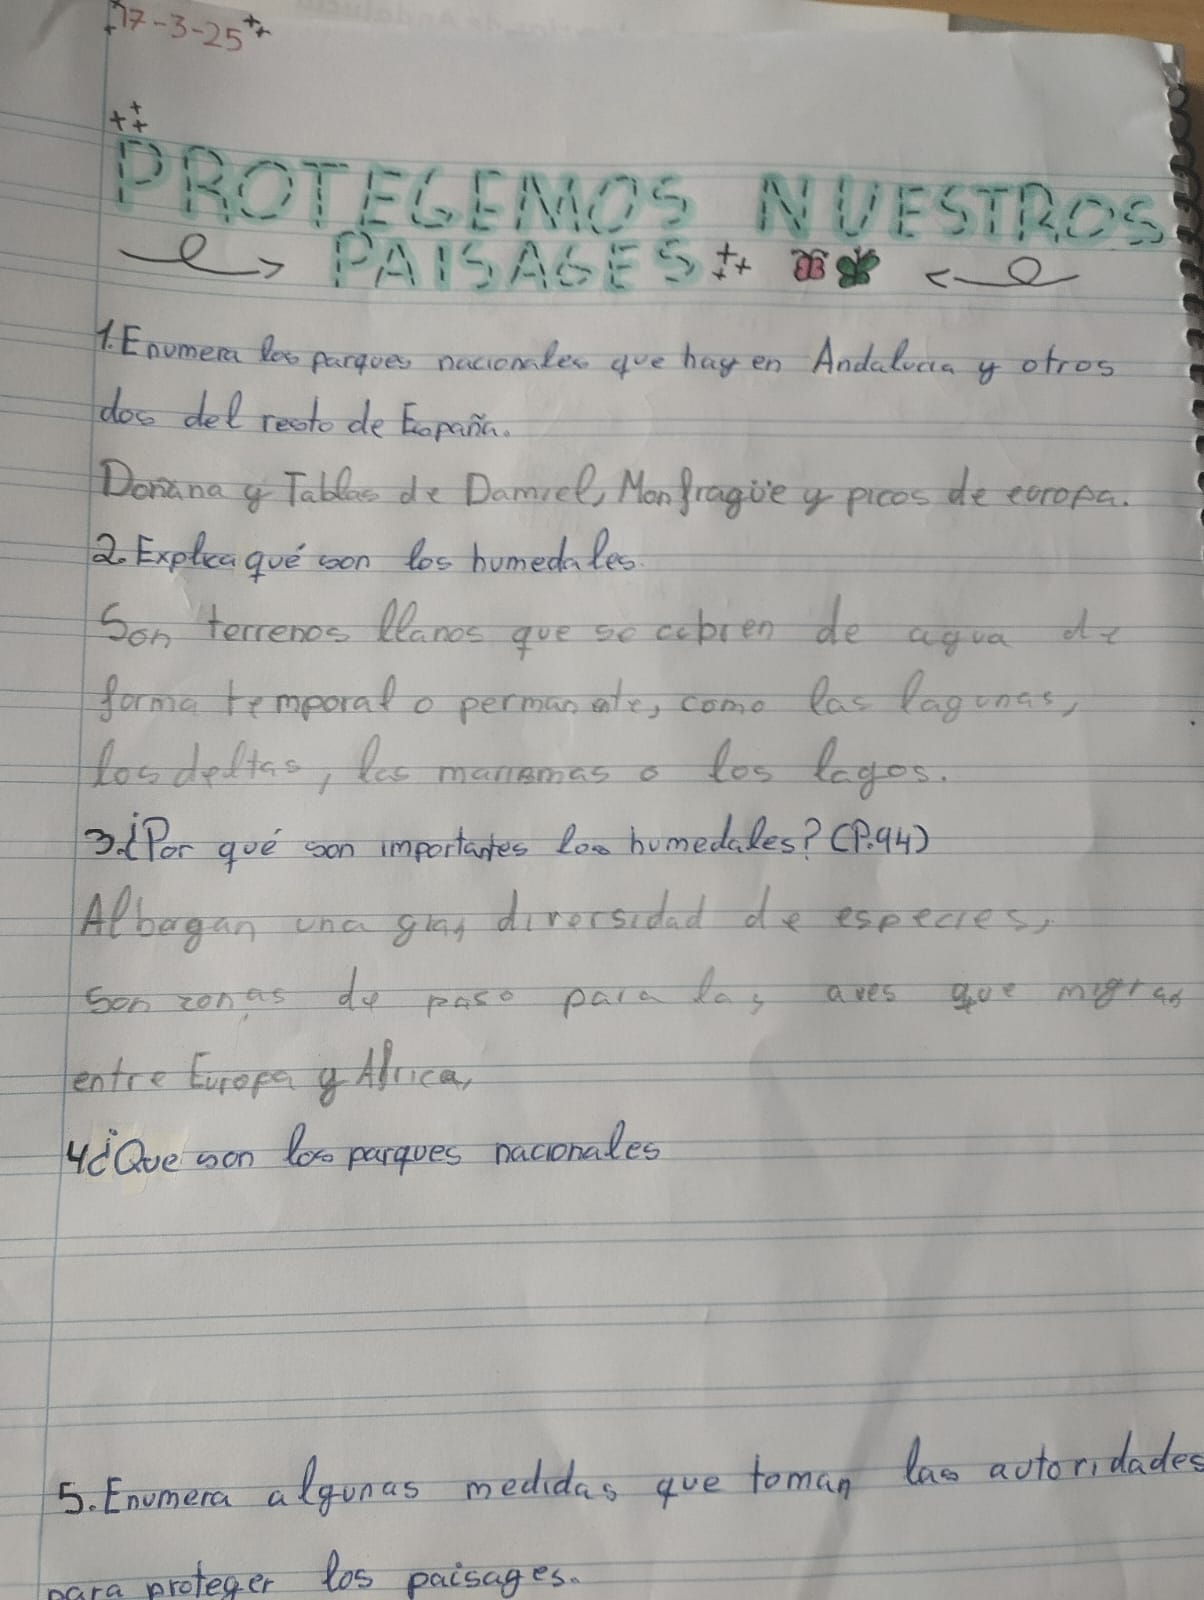 17-3-25
PROTEGEMOS NUESTROS
PAISAGES
1. Enumera los parques nacionales que hay en Andalucia y otros
dos del resto de España.
Donana y Tablas de Damiel, Monfragüe y picos de europa.
2. Explica qué son los humedales.
Son terrenos llanos que se cubren de agua de
forma temporal o permanente, como las lagunas,
los deltas, las marismas o los lagos.
3. ¿Por qué son importantes los humedales? (P.94)
Albergan una gran diversidad de especies,
son zonas de paso para las aves que migran
entre Europa y Africa,
4 ¿Que son los parques nacionales
5. Enumera algunas medidas que toman las autoridades
para proteger los paisages.